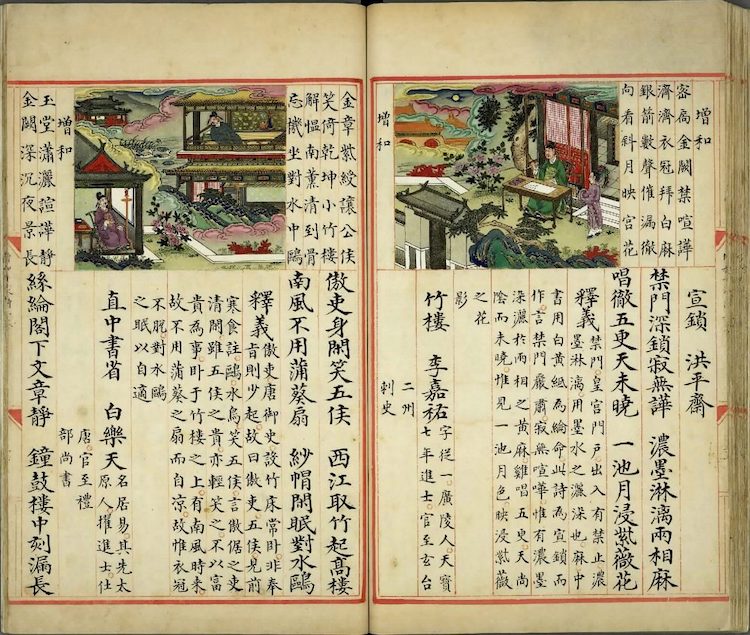 增和
密高金闕禁喧譁
濟濟衣冠拜白麻
銀箭數聲催漏徹
向看斜月映宮花
宣鎖 洪平齋
禁門深鎖寂無譁 濃墨淋漓兩相麻
唱徹五更天未曉 一池月浸紫薇花
釋義 禁門皇宮門戶出入有禁止濃
墨淋漓用墨水之灑深也麻中
書用白黃紙為綸命此詩為宣鎖而
作言禁門嚴肅寂無喧嘩惟有濃墨
深灑於兩相之黃麻雞唱五更天尚
陰而未曉惟見一池月色映浸紫薇
之花
影
增和
竹樓 李嘉祐 字從一廣陵人天寶
七年進士官至玄台
二州
刺史
金章紫綬讓公侯
笑倚乾坤小竹樓
解慍南薰清到骨
忘機坐對水中鷗
傲吏身閒笑五侯 西江取竹起高樓
南風不用蒲葵扇 紗帽閒眠對水鷗
釋義 傲吏唐御史設竹床常卧非奉
旨則少起故曰傲吏五侯見前
寒食註鷗水鳥笑五侯言傲倨之吏
清閒雖五侯之貴亦輕笑之不以富
貴為事卧于竹樓之上有南風時來
故不用蒲葵之扇而自凉故惟衣冠
不脫對水鷗
之眠以自適
增和
玉堂瀟灑諠譁靜
金闕深沉夜景長
直中書省 白樂天 名居易其先太
原人擢進士仕
唐官至禮
部尚書
絲綸閣下文章靜 鐘鼓樓中刻漏長